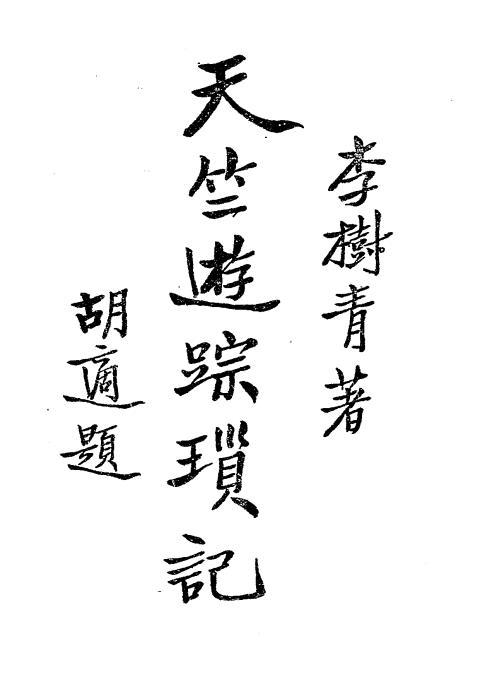 李樹青著
天竺遊踪瑣記
胡適題